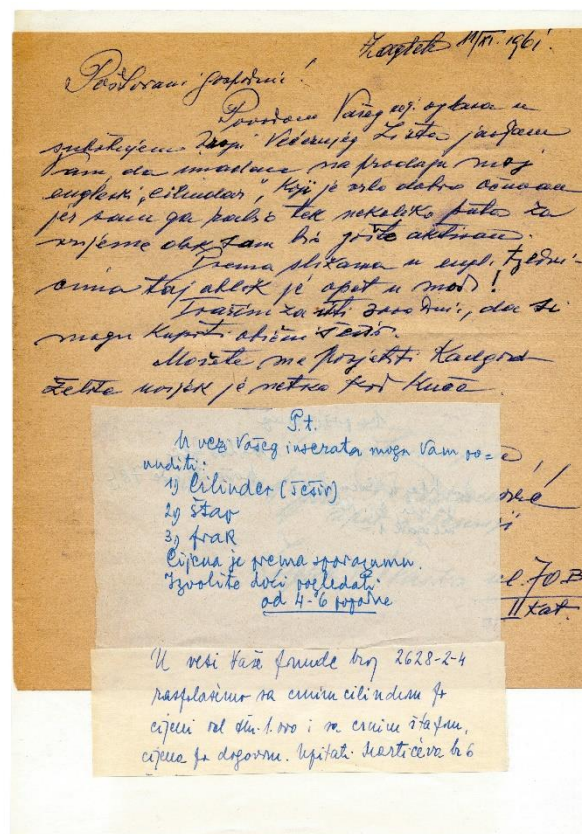 Zagreb 11/XI. 1961.
Poštovani gospodine!
Povodom Vašeg oglasa u
subotnjem Večernjeg Lista javljam
Vam, da imadem na prodaju moj
engleski „cilindar“, koji je vrlo dobro očuvan
jer sam ga rabio tek nekoliko puta za
vrijeme dok sam bio još aktivan.
Prema slikama u engl. tjedni-
cima taj oblik je opet u modi!
Tražim za isti 3000 din, da si
mogu kupiti obični šešir.
Možete me posjetiti kadgod
želite uvijek je netko kod kuće.
P.t.
U vezi Vašeg inserata mogu Vam po=
nuditi:
1) Cilinder (šešir)
2) Štap
3) frak
Cijena je prema sporazumu.
Izvolite doći pogledati
od 4-6 popodne
ul. 70.B
II kat.
U vezi Vaše ponude broj 2628-2-4
raspolažemo sa crnim cilindrom po
cijeni od din. 1.000 i sa crnim štapom,
cijena po dogovoru. Upitati. Martićeva br 6